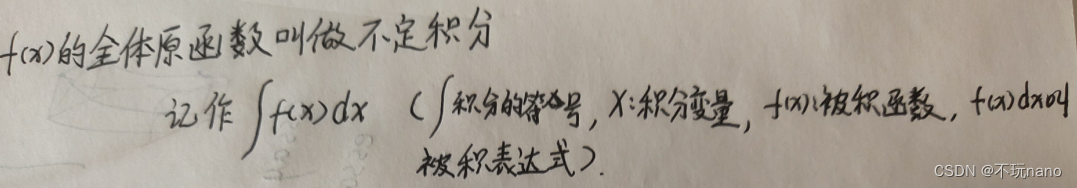 f(x)的全体原函数叫做不定积分
记作∫f(x)dx (∫积分的符号, x:积分变量, f(x):被积函数, f(x)dx叫
被积表达式).
CSDN @不玩nano